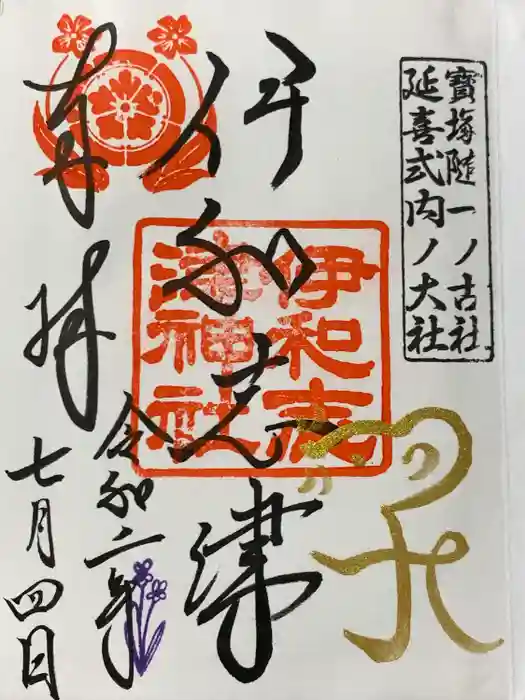 寶塚隨一ノ古社
延喜式内ノ大社
伊和志津
伊和志
津神社
奉拝
令和二年
七月四日